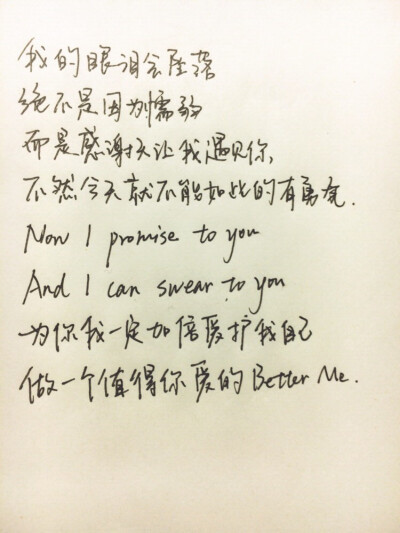 我的眼泪会坠落
绝不是因为懦弱
而是感谢天让我遇见你,
不然今天就不能如此的有勇气.
Now I promise to you
And I can swear to you
为你我一定加倍爱护我自己
做一个值得你爱的 Better Me.